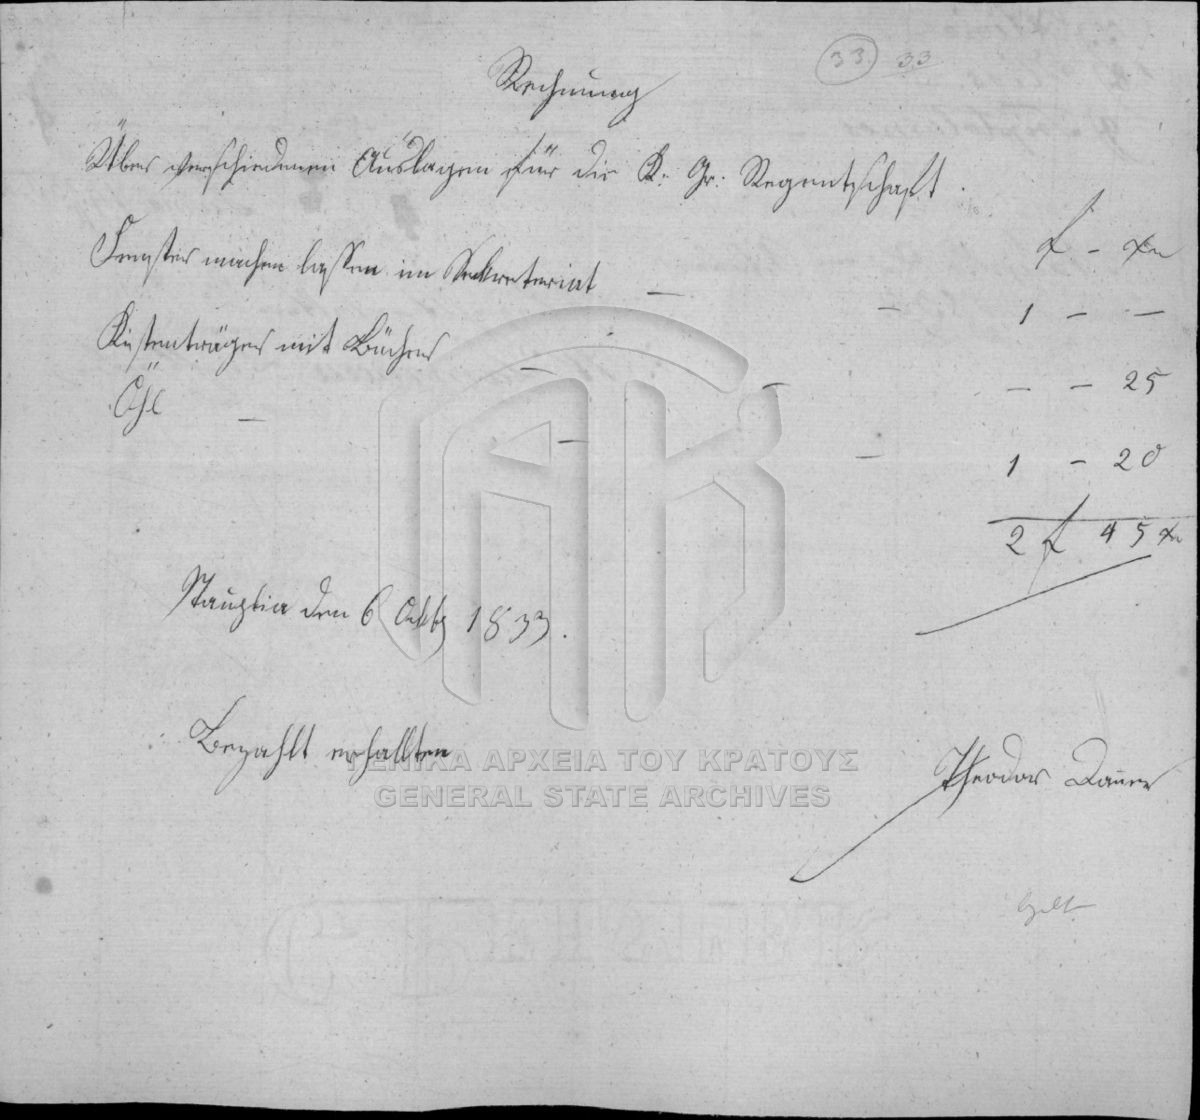 33. 33
Rechnung
Über verschiedenen Auslagen für die K: Gr: Regentschaft.
f – xr
Fenster machen lassen im Sekretariat — — 1 – —
Kistenträger mit Bücher — — — – 25
Öhl — — — 1 – 20
2 f 45 xr
Nauplia den 6 Oktb 1833.
Bezahlt erhallten
Theodor
ΓΕΝΙΚΑ ΑΡΧΕΙΑ ΤΟΥ ΚΡΑΤΟΥΣ
GENERAL STATE ARCHIVES